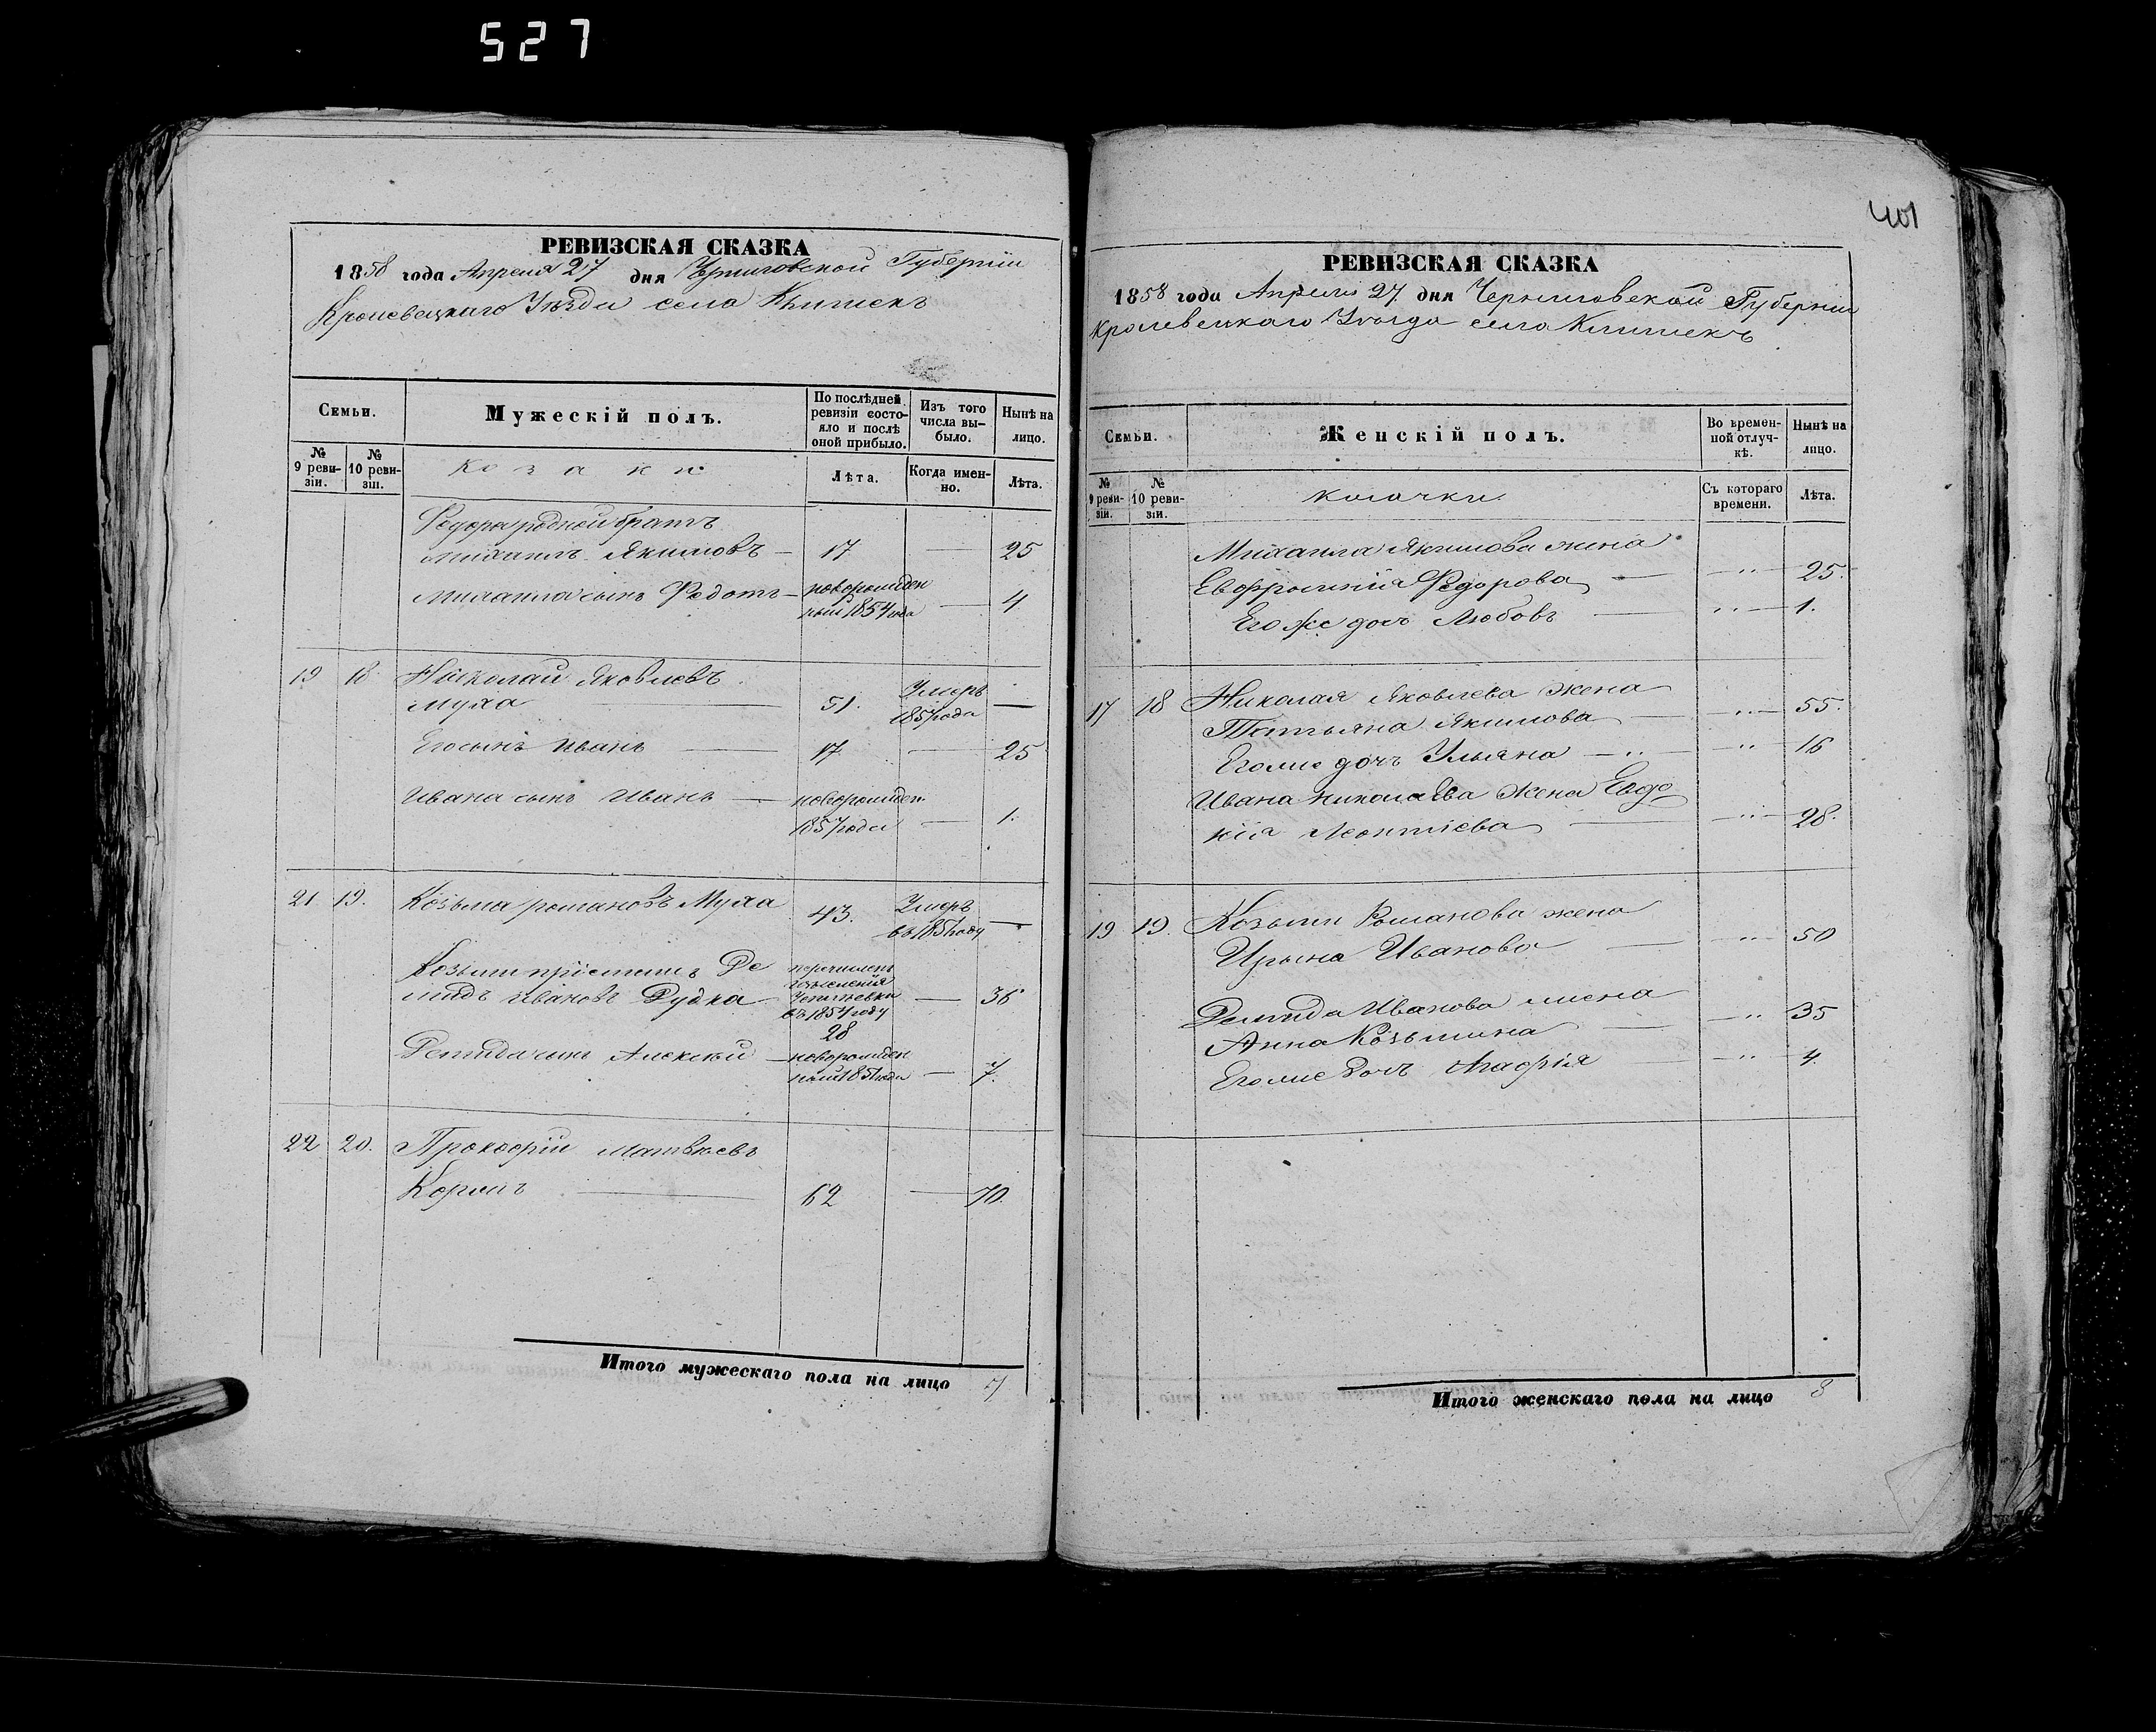 527
РЕВИЗСКАЯ СКАЗКА
1858 года Апреля 27 дня Черниговской Губернии
Кролевецкаго Уезда села Клишекъ
Семьи.
Мужескій полъ.
По послѣдней ревизіи состояло и послѣ оной прибыло.
Изъ того числа выбыло.
Нынѣ на лицо.
№ 9 ревизіи.
№ 10 ревизіи.
Козаки
Лѣта.
Когда именно.
Лѣта.
Федора родной братъ
Михаилъ Якимовъ — 17 — 25
Михаила сынъ Федотъ — новорожден
ный 1854 года — 4
19 18 Николай Яковлевъ
Муха — 51. Умеръ
1857 года —
Его сынъ Иванъ — 17 — 25
Ивана сынъ Иванъ — новорожден
1857 года — 1.
21 19. Козьма романовъ Муха 43. Умеръ
въ 1857 году —
Козьми пріемышъ Де
мидъ Ивановъ Дудка — 36
перечисленъ
въ 1854 году
28
Демида сынъ Алексѣй — новорожден
ный 1851 года — 7.
22 20. Прокофій Матвѣевъ
62 — 70.
Итого мужескаго пола на лицо 7
401
РЕВИЗСКАЯ СКАЗКА
1858 года Апреля 27 дня Черниговской Губерніи
Кролевецкаго Уѣзда села Клишекъ
Семьи.
Женскій полъ.
Во временной отлучкѣ.
Нынѣ на лицо.
№ 9 ревизіи.
№ 10 ревизіи.
козачки
Съ котораго времени.
Лѣта.
Михаила Якимова жена
Евфросинія Федорова — 25.
Его же дочь Любовь — 1.
17 18 Николая Яковлева жена
Татьяна Якимова — 55.
Его же дочь Ульяна — 16
Ивана Николаева жена Евдо
кія Леонтіева — 28.
19 19. Козьми Романова жена
Ирина Иванова — 50
Демида Иванова жена
Анна Козьмина — 35
Его же дочь Агафія — 4.
Итого женскаго пола на лицо 8